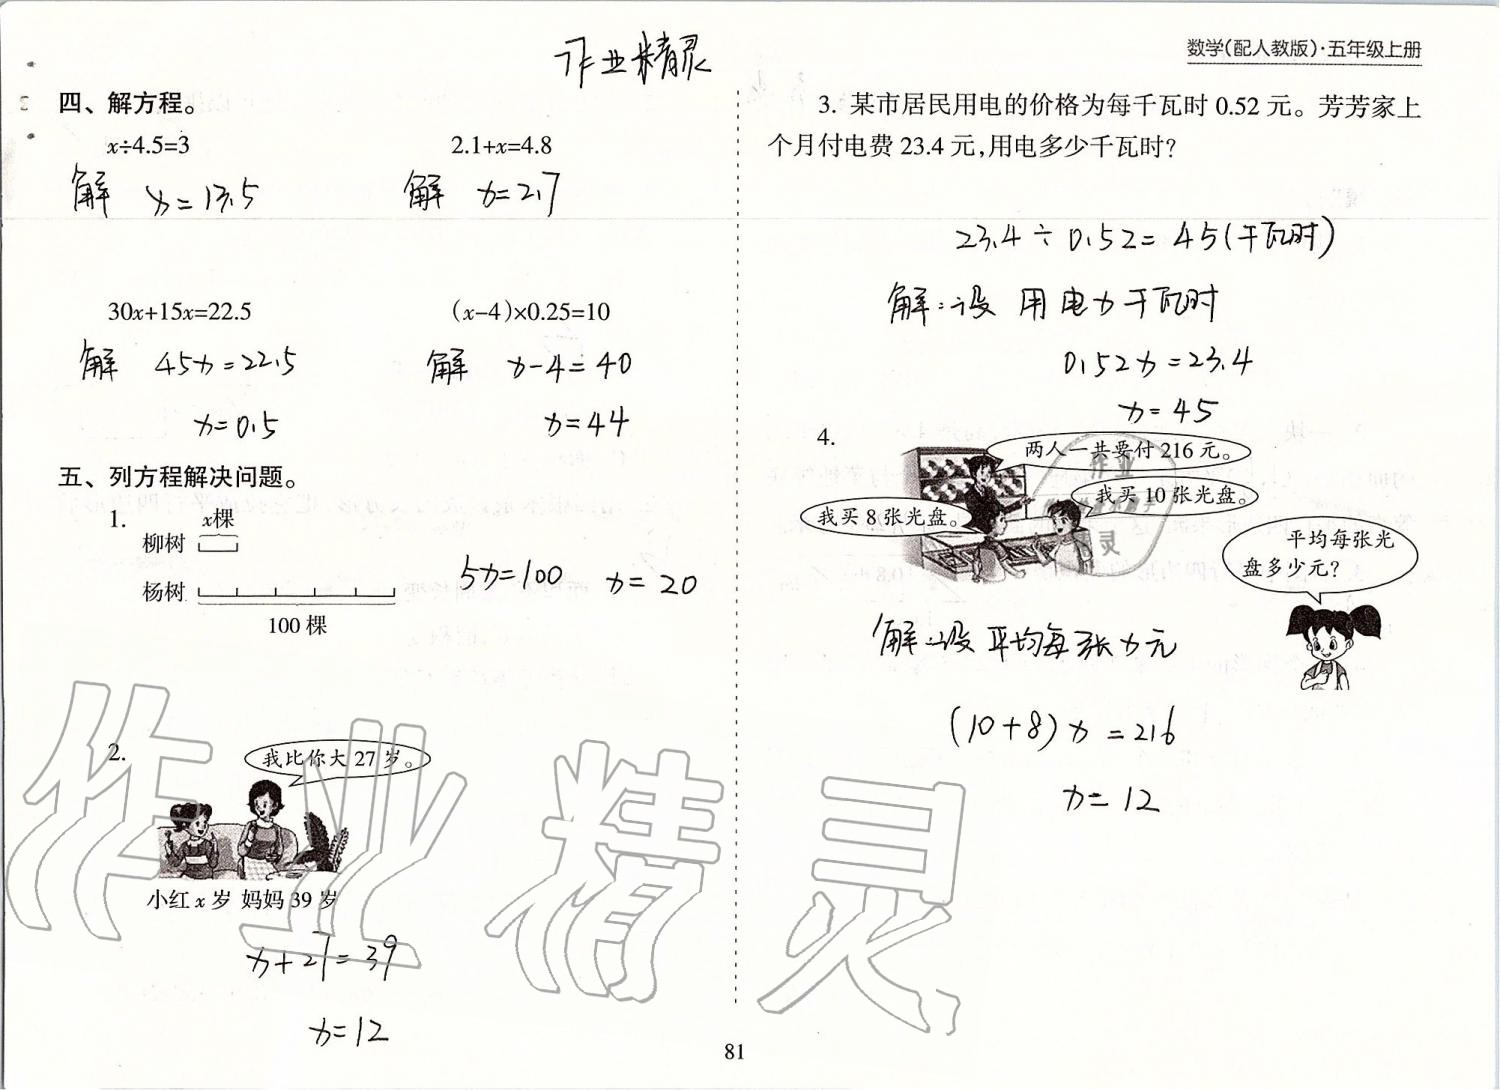 作业精灵
数学(配人教版)·五年级上册
四、解方程。
x÷4.5=3
2.1+x=4.8
解 x=13.5
解 x=2.7
30x+15x=22.5
(x-4)×0.25=10
解 45x=22.5
解 x-4=40
x=0.5
x=44
五、列方程解决问题。
1.
x棵
柳树
杨树
100 棵
5x=100 x=20
2.
我比你大 27 岁。
小红 x 岁 妈妈 39 岁
x+27=39
x=12
3. 某市居民用电的价格为每千瓦时 0.52 元。芳芳家上
个月付电费 23.4 元,用电多少千瓦时?
23.4÷0.52=45(千瓦时)
解:设 用电x千瓦时
0.52x=23.4
x=45
4.
两人一共要付 216 元。
我买 10 张光盘。
我买 8 张光盘。
平均每张光
盘多少元?
解:设平均每张x元
(10+8)x=216
x=12
作业精灵
81